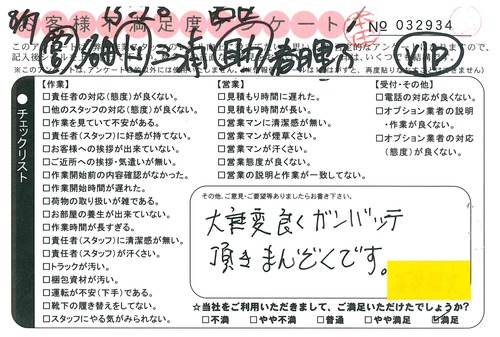 お客様不満足度アンケート
No 032934
●チェックリスト
【作業】
□責任者の対応(態度)が良くない。
□他のスタッフの対応(態度)が良くない。
□作業を見ていて不安がある。
□責任者(スタッフ)に好感が持てない。
□お客様への挨拶が出来ていない。
□ご近所への挨拶・気遣いが無い。
□作業開始前の内容確認がなかった。
□作業開始時間が遅れた。
□荷物の取り扱いが雑である。
□お部屋の養生が出来ていない。
□作業時間が長すぎる。
□責任者(スタッフ)に清潔感が無い。
□責任者(スタッフ)が汗くさい。
□トラックが汚い。
□梱包資材が汚い。
□運転が不安(下手)である。
□靴下の履き替えをしてない。
□スタッフにやる気がみられない。
【営業】
□見積もり時間に遅れた。
□見積もり時間が長い。
□営業マンに清潔感が無い。
□営業マンが煙草くさい。
□営業マンが汗くさい。
□営業態度が良くない。
□営業の説明と作業が一致してない。
【受付・その他】
□電話の対応が良くない。
□オプション業者の説明
・作業が良くない。
□オプション業者の対応
(態度)が良くない。
その他、ご意見・ご要望等ありましたらお書き下さい。
大変良くガンバッテ
頂きまんぞくです。
☆当社をご利用いただきまして、ご満足いただけたでしょうか?
□不満 □やや不満 □普通 □やや満足 ☑満足